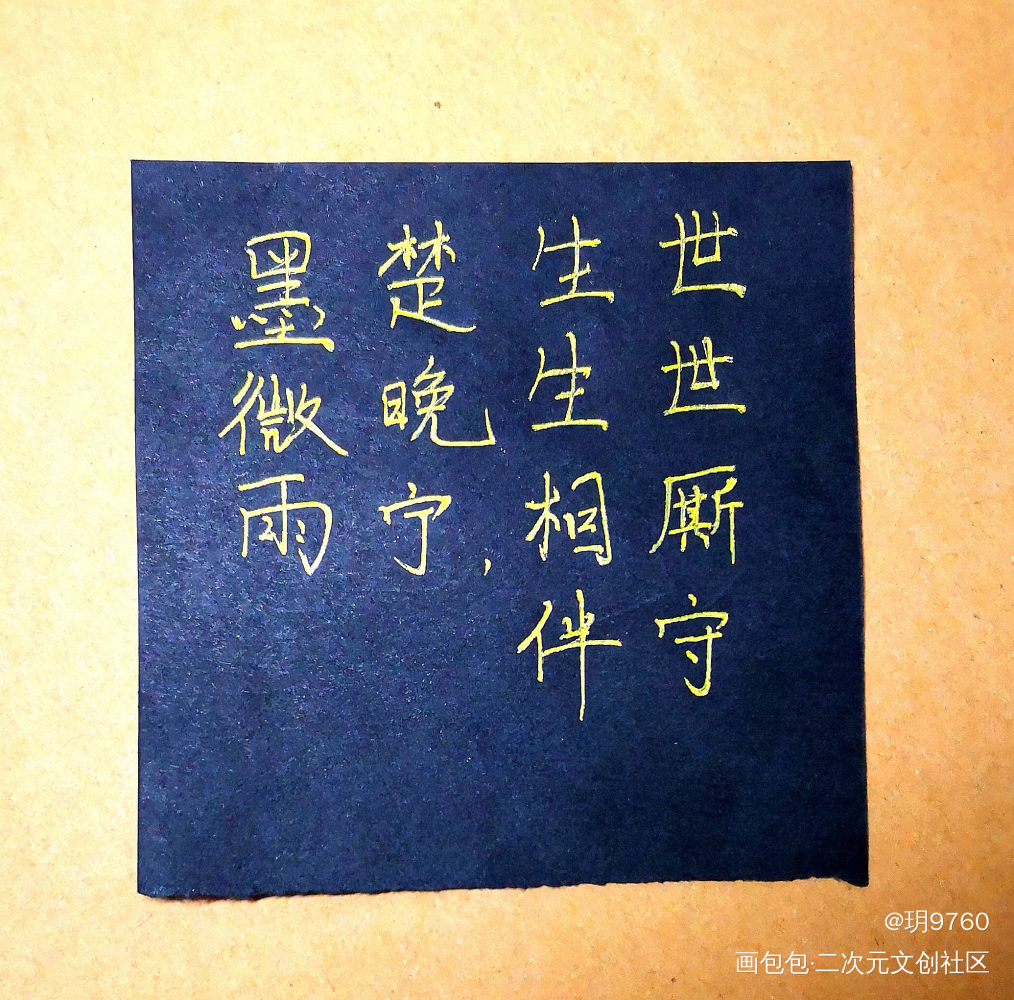 世世厮守
生生相伴
楚晚宁,
墨微雨
@玥9760
画包包·二次元文创社区